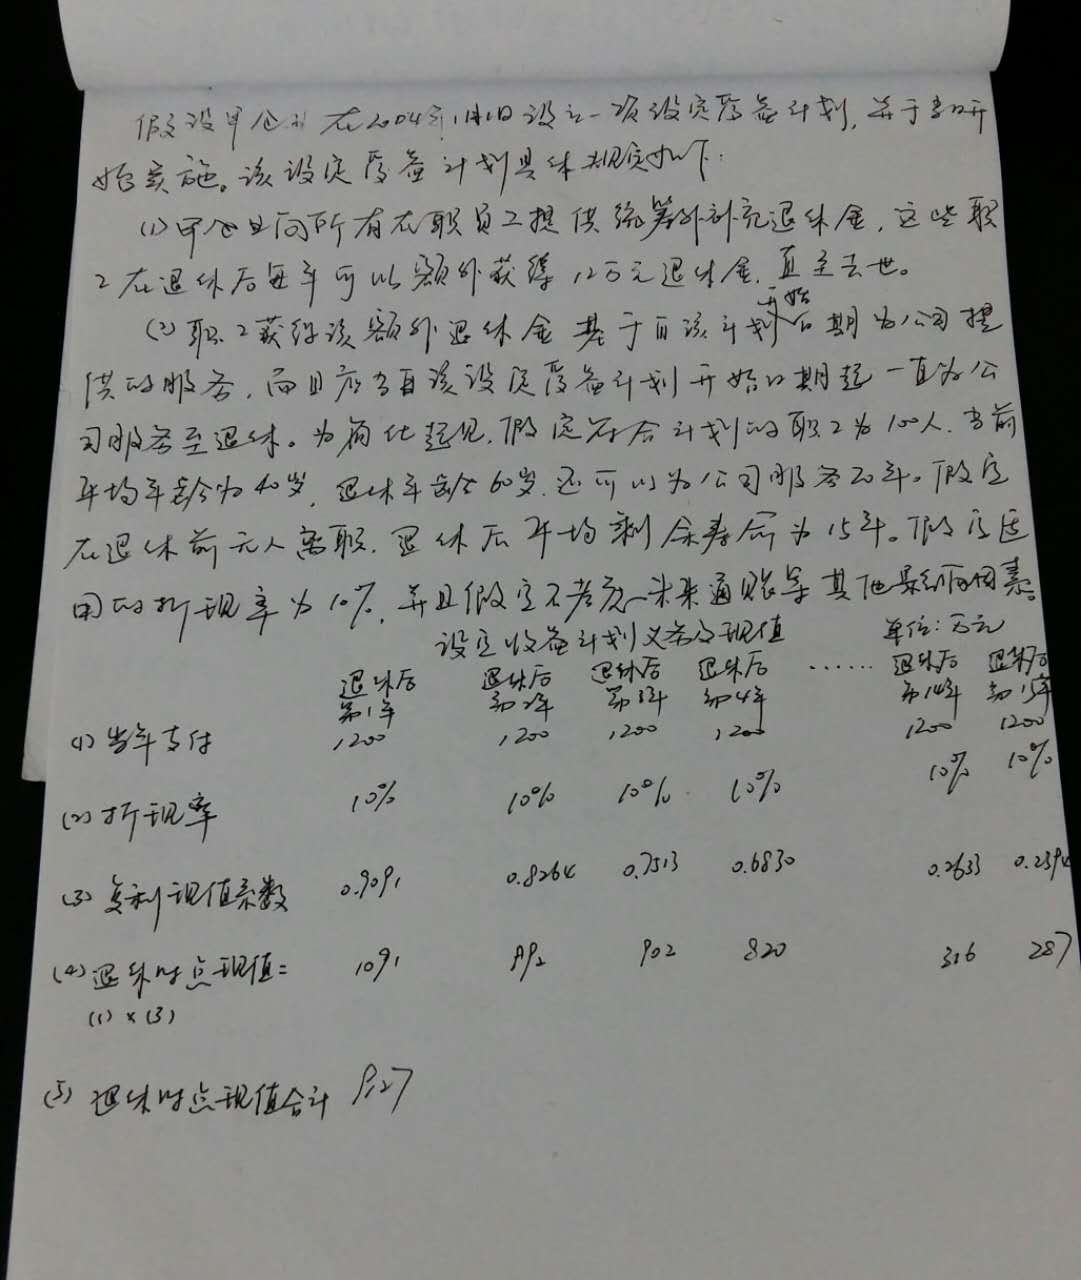 假设甲企业在2004年1月1日设立一项设定受益计划,并于当日开
始实施。该设定受益计划具体规定如下:
(1)甲企业向所有在职员工提供统筹外补充退休金,这些职
工在退休后每年可以额外获得12万元退休金,直至去世。
(2)职工获得该额外退休金基于自该计划开始日期为公司提
供的服务,而且应当自该设定受益计划开始日期起一直为公
司服务至退休。为简化起见,假定符合计划的职工为100人,当前
平均年龄为40岁,退休年龄60岁,还可以为公司服务20年。假定
在退休前无人离职,退休后平均剩余寿命为15年。假定适
用的折现率为10%,并且假定不考虑未来通胀等其他影响因素。
设定收益计划义务及现值 单位:万元
退休后第1年 退休后第2年 退休后第3年 退休后第4年 …… 退休后第14年 退休后第15年
(1)当年支付 1200 1200 1200 1200 1200 1200
(2)折现率 10% 10% 10% 10% 10% 10%
(3)复利现值系数 0.9091 0.8264 0.7513 0.6830 0.2633 0.2394
(4)退休时点现值= 1091 992 902 820 316 287
(1)×(3)
(5)退休时点现值合计 9127